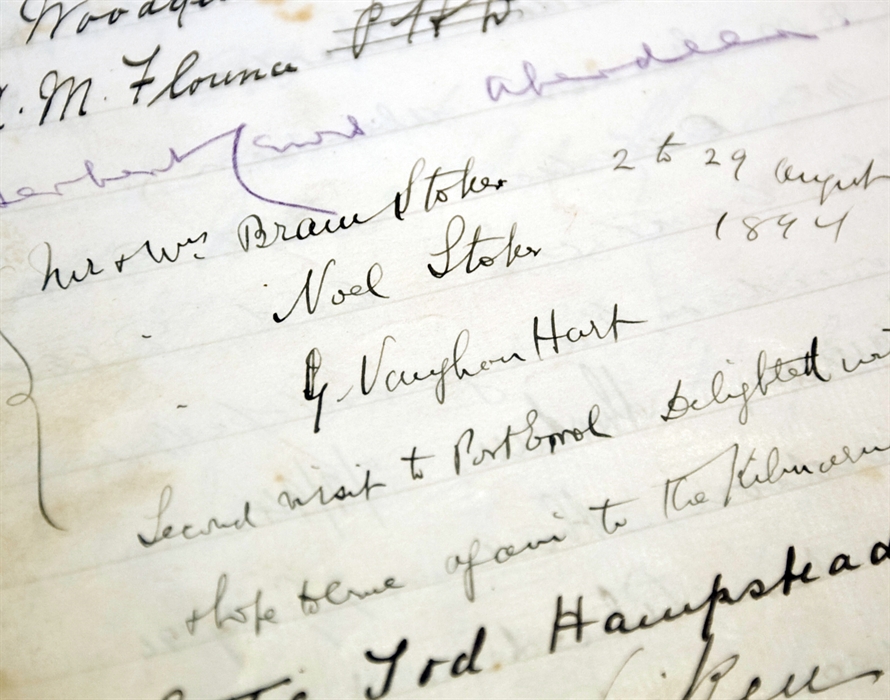 M. Flounce
Aberdeen
Mr & Mrs Bram Stoker 2 to 29 August
Noel Stoker 1894
G. Vaughan Hart
Second visit to Port Erroll Delighted
& hope to come again to the Kilmarn
Tod Hampstead